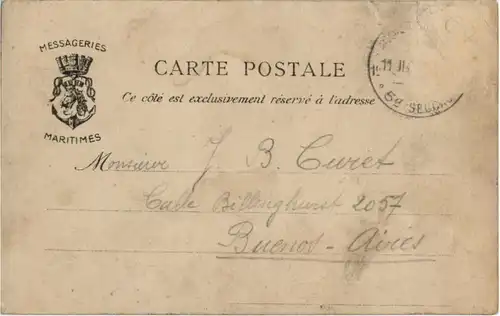 MESSAGERIES
MARITIMES
CARTE POSTALE
Ce côté est exclusivement réservé à l'adresse
Monsieur J. B. Curet
Calle Billinghurst 2057
Buenos-Aires